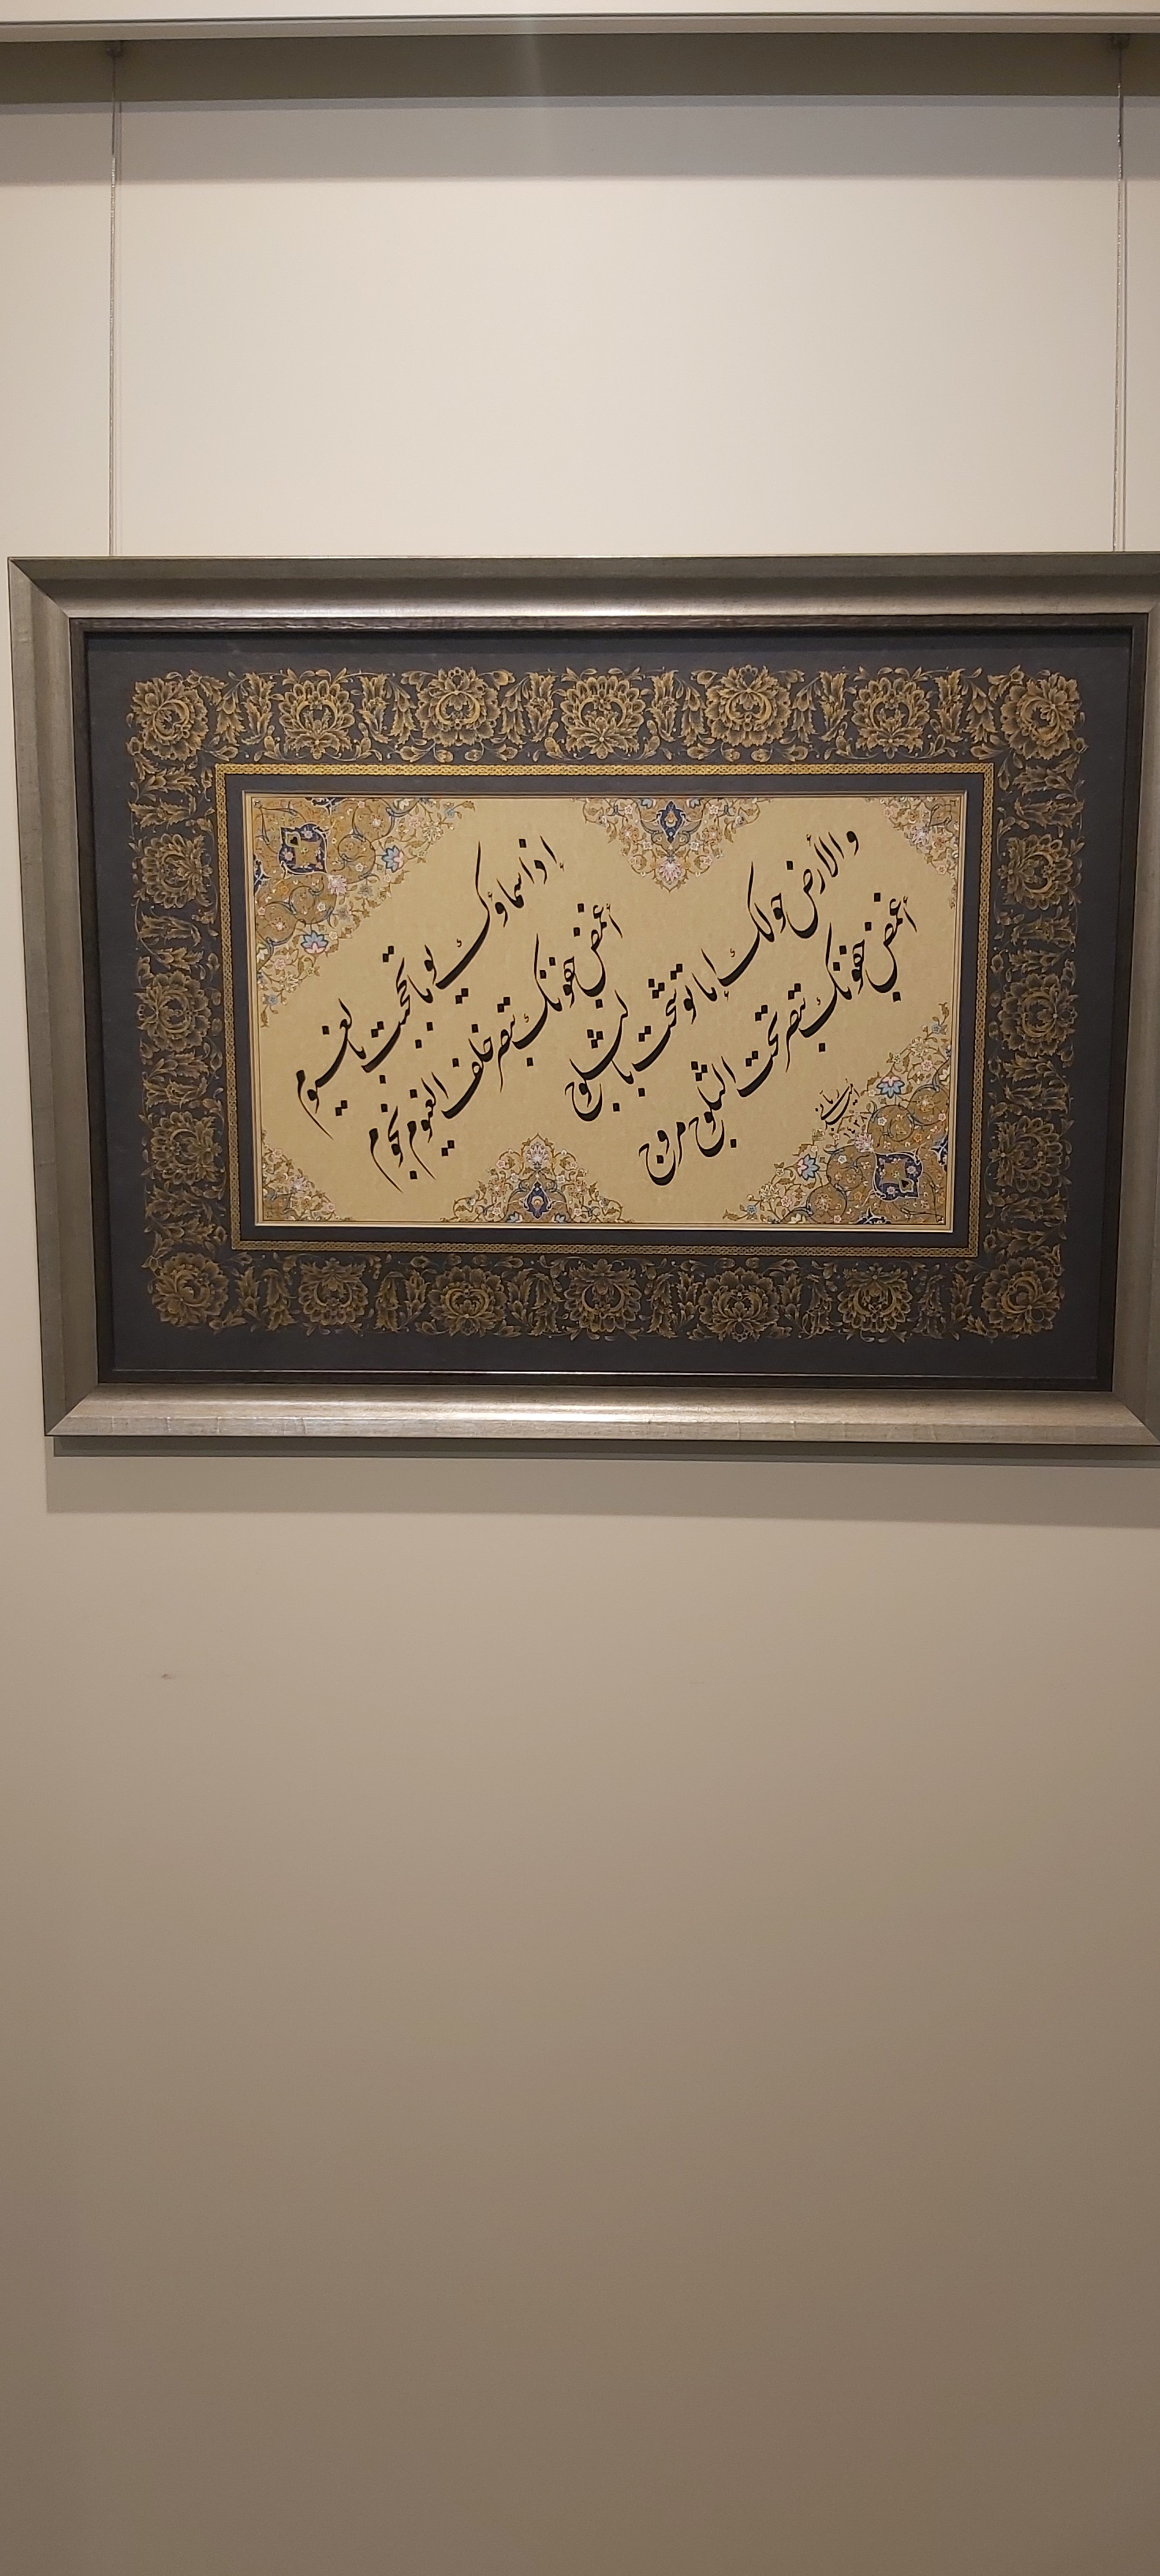 إذا سماؤك يوما تحجبت بالغيوم
أغمض جفونك تبصر خلف الغيوم نجوم
والأرض حولك إما توشحت بالثلوج
أغمض جفونك تبصر تحت الثلوج مروج